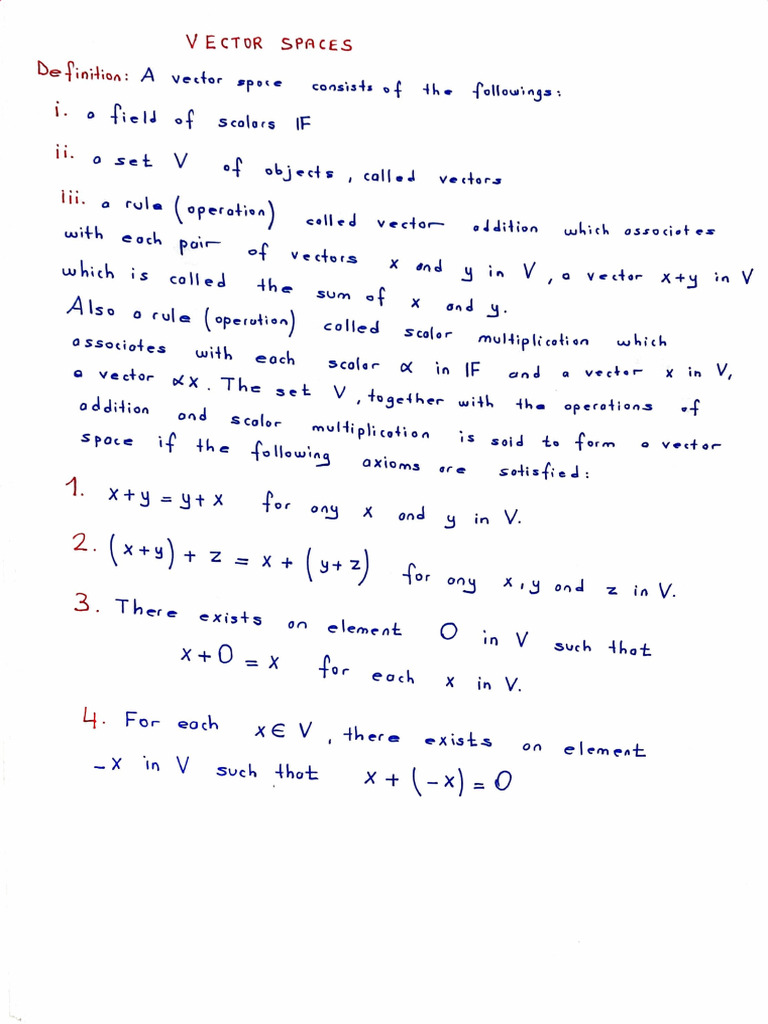 VECTOR SPACES
Definition: A vector space consists of the followings:
i. a field of scalars IF
ii. a set V of objects, called vectors
iii. a rule (operation) called vector addition which associates
with each pair of vectors x and y in V, a vector x+y in V
which is called the sum of x and y.
Also a rule (operation) called scalar multiplication which
associates with each scalar α in IF and a vector x in V,
a vector αx. The set V, together with the operations of
addition and scalar multiplication is said to form a vector
space if the following axioms are satisfied:
1. x+y = y+x for any x and y in V.
2. (x+y) + z = x + (y+z) for any x,y and z in V.
3. There exists an element 0 in V such that
x+0 = x for each x in V.
4. For each x∈V, there exists an element
-x in V such that x + (-x) = 0